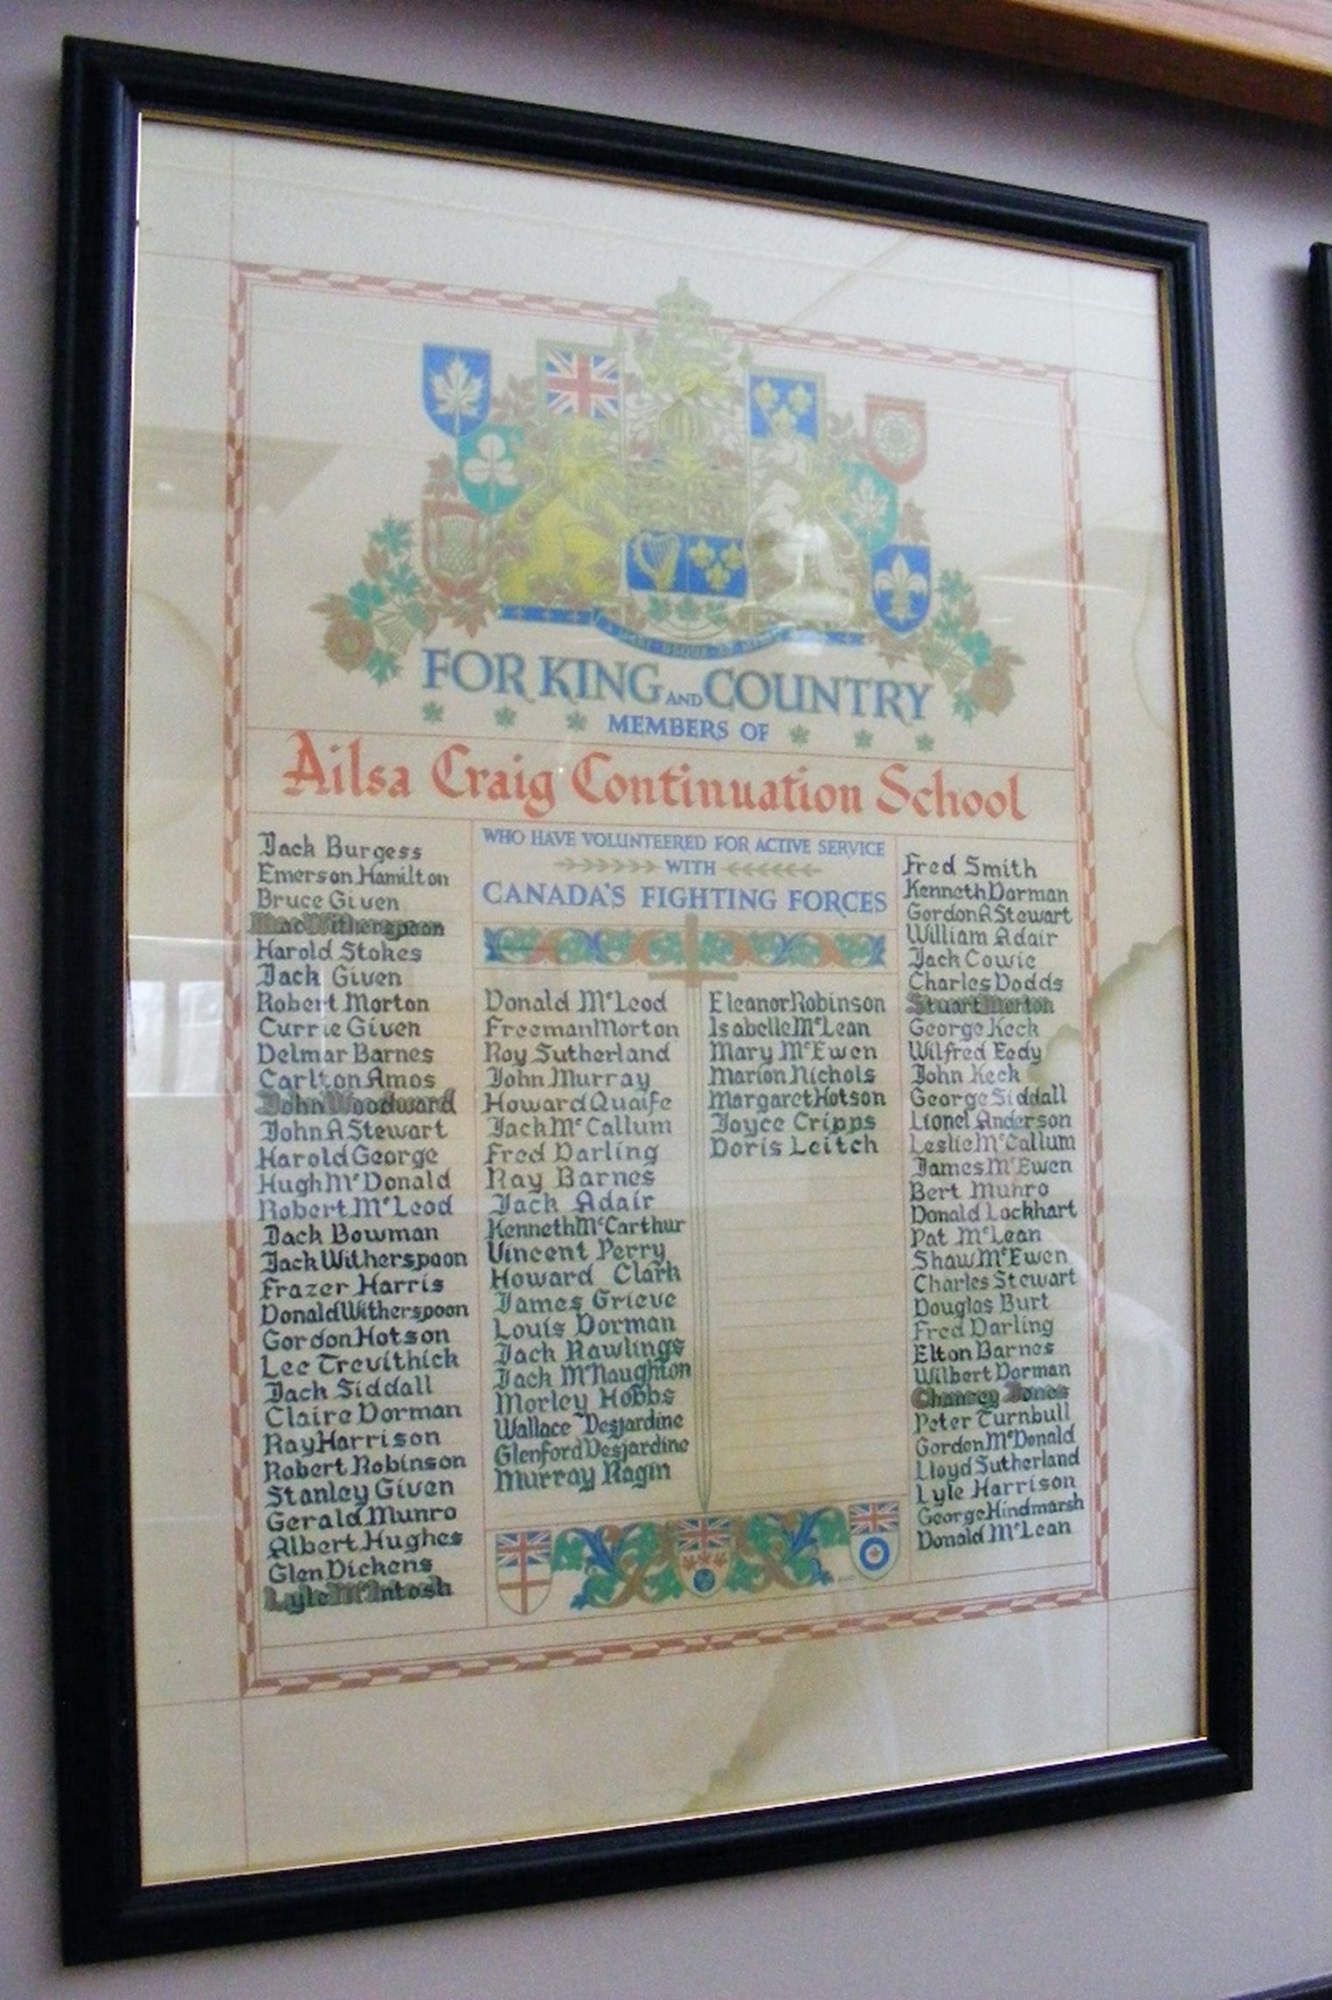 FOR KING AND COUNTRY
MEMBERS OF
Ailsa Craig Continuation School
WHO HAVE VOLUNTEERED FOR ACTIVE SERVICE
WITH
CANADA'S FIGHTING FORCES
Jack Burgess
Emerson Hamilton
Bruce Given
Mac Witherspoon
Harold Stokes
Jack Given
Robert Morton
Currie Given
Delmar Barnes
Carlton Amos
John Woodward
John A Stewart
Harold George
Hugh McDonald
Robert McLeod
Jack Bowman
Jack Witherspoon
Frazer Harris
Donald Witherspoon
Gordon Hotson
Lee Trevithick
Jack Siddall
Claire Dorman
Ray Harrison
Robert Robinson
Stanley Given
Gerald Munro
Albert Hughes
Glen Dickens
Lyle McIntosh
Donald McLeod
Freeman Morton
Roy Sutherland
John Murray
Howard Quaife
Jack McCallum
Fred Darling
Ray Barnes
Jack Adair
Kenneth McCarthur
Vincent Perry
Howard Clark
James Grieve
Louis Dorman
Jack Rawlings
Jack McNaughton
Morley Hobbs
Wallace Desjardine
Glenford Desjardine
Murray Ragin
Eleanor Robinson
Isabelle McLean
Mary McEwen
Marion Nichols
Margaret Hotson
Joyce Cripps
Doris Leitch
Fred Smith
Kenneth Dorman
Gordon A Stewart
William Adair
Jack Cowie
Charles Dodds
Stuart Morton
George Keck
Wilfred Eedy
John Keck
George Siddall
Lionel Anderson
Leslie McCallum
James McEwen
Bert Munro
Donald Lockhart
Pat McLean
Shaw McEwen
Charles Stewart
Douglas Burt
Fred Darling
Elton Barnes
Wilbert Dorman
Chancey Jones
Peter Turnbull
Gordon McDonald
Lloyd Sutherland
Lyle Harrison
George Hindmarsh
Donald McLean